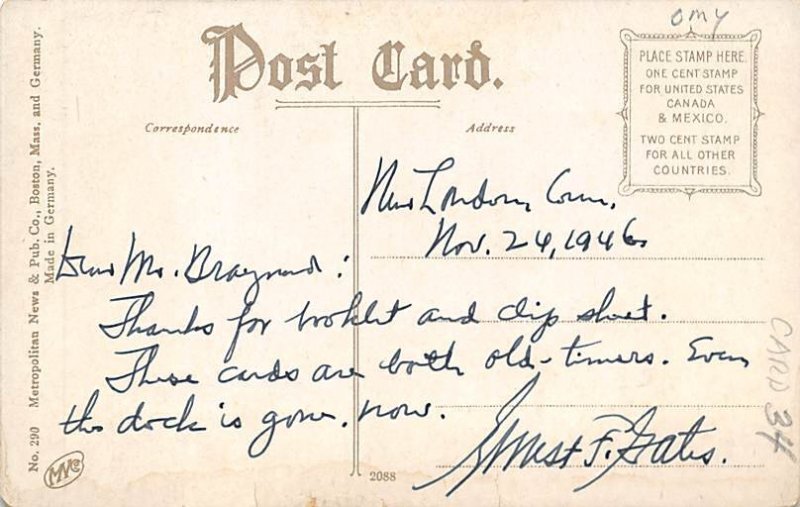 omy
Post Card.
PLACE STAMP HERE.
ONE CENT STAMP
FOR UNITED STATES
CANADA
& MEXICO.
TWO CENT STAMP
FOR ALL OTHER
COUNTRIES.
Correspondence
Address
New London, Conn.
Nov. 24, 1946
Dear Mr. Braynard:
Thanks for booklet and clip sheet.
These cards are both old-timers. Even
the dock is gone, now.
Ernest F. Gates.
No. 290 Metropolitan News & Pub. Co., Boston, Mass. and Germany.
Made in Germany.
2088
CARD 34